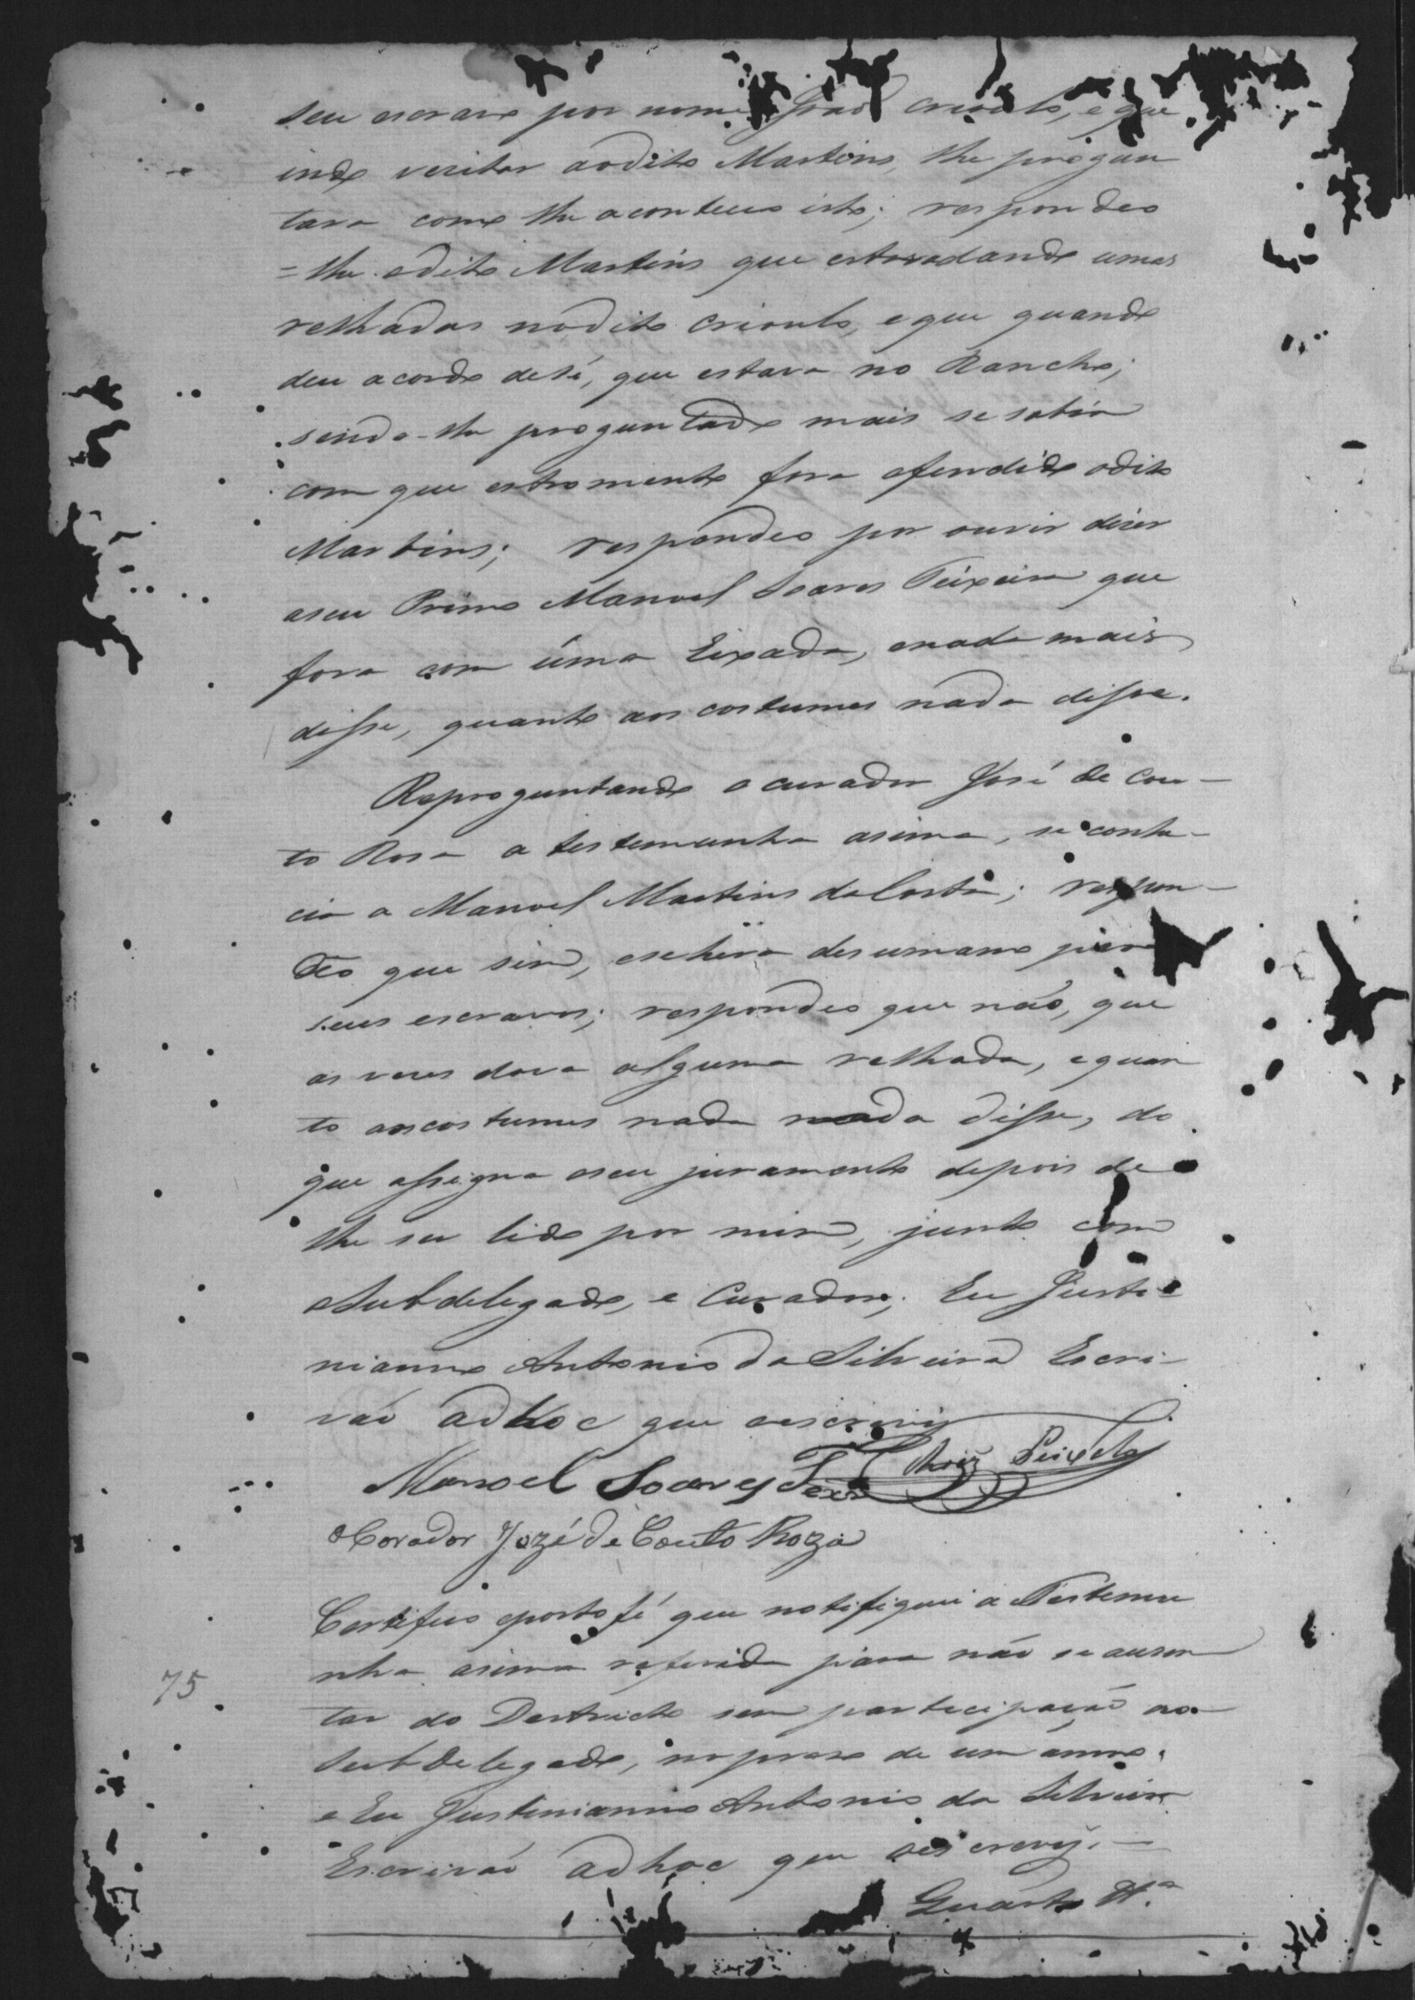 seu escravo por nome João crioulo, e que
indo vezitar aodito Martins, lhe pregun
tara como lhe aconteceo isto; respondeo
=lhe odito Martins que estava dando umas
relhadas nodito crioulo, e que quando
deu acordo desí, que estava no Rancho;
sendo-lhe proguntado mais se sabia
com que estromento fora ofendido odito
Martins; respondeo por ouvir dizer
aseu Primo Manoel Soares Teixeira que
fora com úma Eixada, enada mais
disse, quanto aos costumes nada disse.
Reproguntando o curador José de Cou-
to Rosa a testemunha asima, se conhe-
cia a Manoel Martins da Costa; respon-
deo que sim, esehera desumano para
seus escravos; respondeo que não, que
as vezes dava alguma relhada, e quan
to aos costumes nada nada disse, do
que assigna oseu juramento depois de
lhe ser lido por mim, junto com
Subdelegado, e Curador; Eu Justi-
nianno Antonio da Silveira Escri-
vão adhoc que oescrevi
Manoel Soares Teixra Roiz Peixoto
oCorador Jozé de Couto Roza
Certifico eporto fé que notifiquei a Testemu
nha asima referida para não se ausen
tar do Destricto sem participação ao
Subdelegado, no prazo de um anno.
e Eu Justinianno Antonio da Silveira
Escrivão adhoc que oescrevy.—
75
Quarta Ta